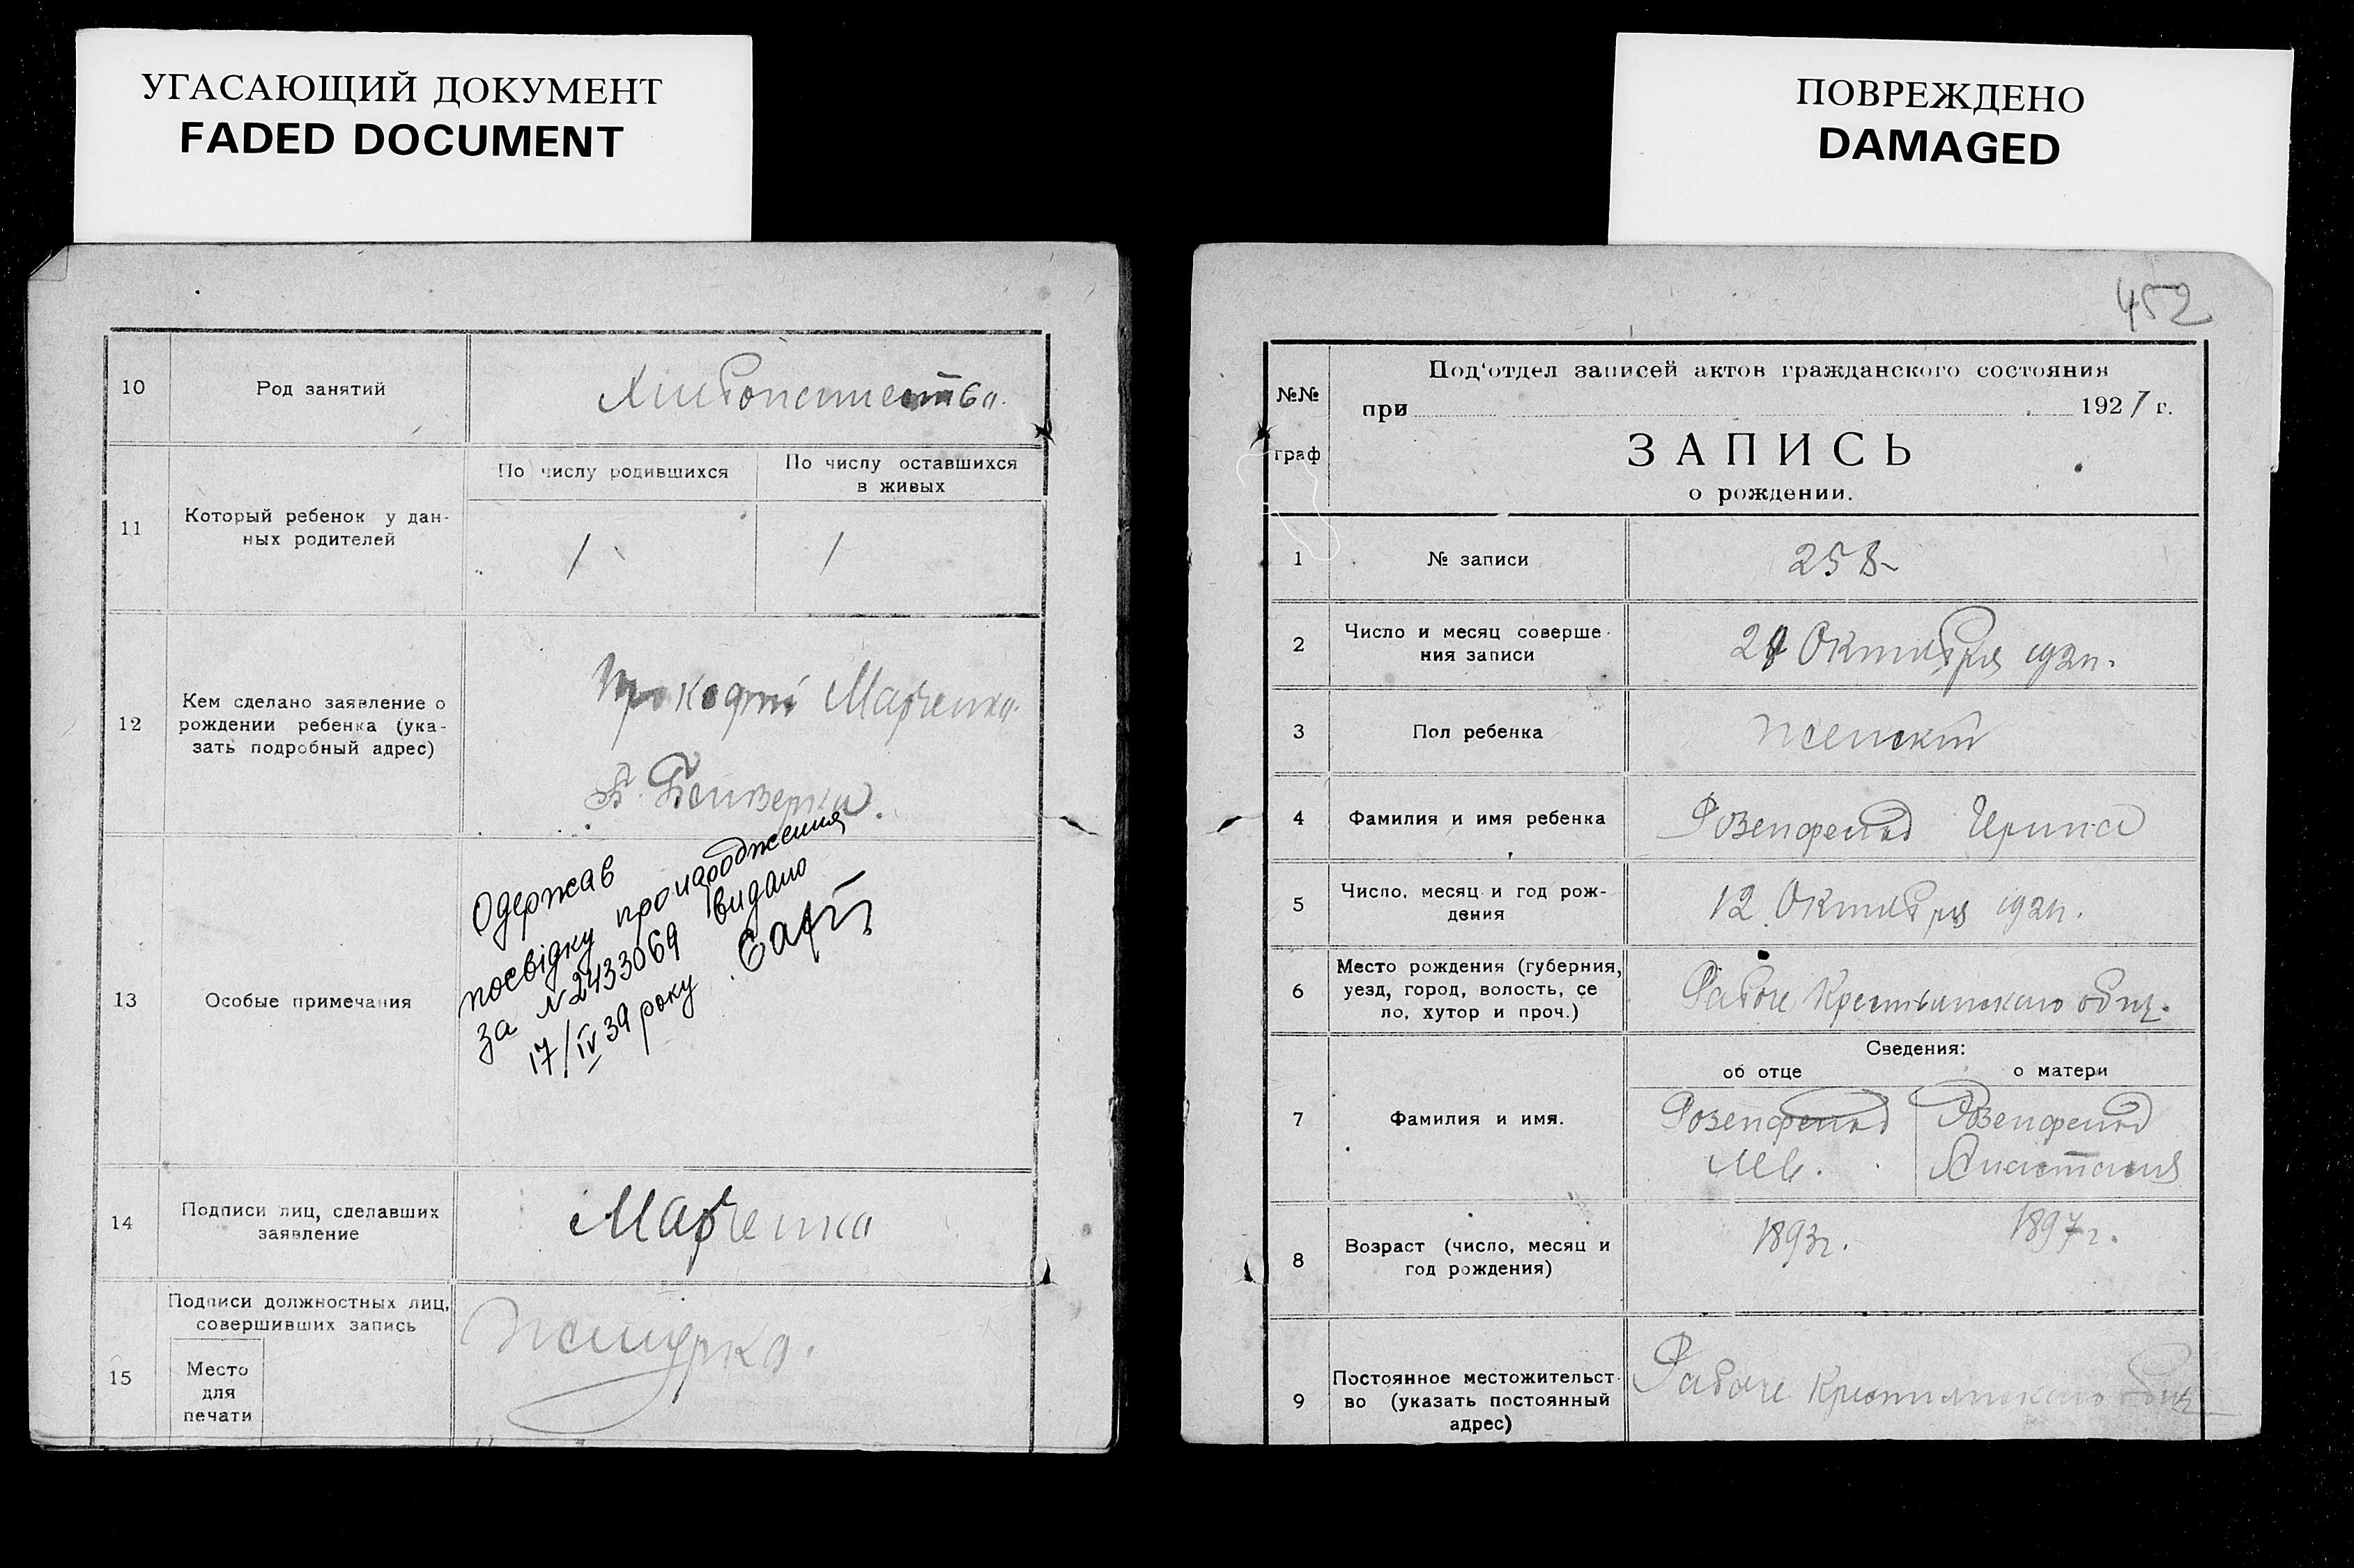 УГАСАЮЩИЙ ДОКУМЕНТ
FADED DOCUMENT
10
Род занятий
11
Который ребенок у дан-
ных родителей
По числу родившихся
По числу оставшихся
в живых
1
1
12
Кем сделано заявление о
рождении ребенка (ука-
зать подробный адрес)
13
Особые примечания
Одержав
посвідку про народження
за N 2433069 видано
17/IV 39 року
14
Подписи лиц, сделавших
заявление
15
Подписи должностных лиц,
совершивших запись
Место
для
печати
ПОВРЕЖДЕНО
DAMAGED
452
№№
граф
Под'отдел записей актов гражданского состояния
при 1921 г.
ЗАПИСЬ
о рождении.
1
№ записи
258
2
Число и месяц соверше-
ния записи
Октября 1921.
3
Пол ребенка
женский
4
Фамилия и имя ребенка
Розенфельд Ирина
5
Число, месяц и год рож-
дения
12 Октября 1921.
6
Место рождения (губерния,
уезд, город, волость, се
ло, хутор и проч.)
Рабоче Крестьянского общ.
Сведения:
об отце
о матери
7
Фамилия и имя.
Розенфельд
Лев.
Розенфельд
Анастасия
8
Возраст (число, месяц и
год рождения)
1893г.
1897г.
9
Постоянное местожительст-
во (указать постоянный
адрес)
Рабоче Крестьянского общ